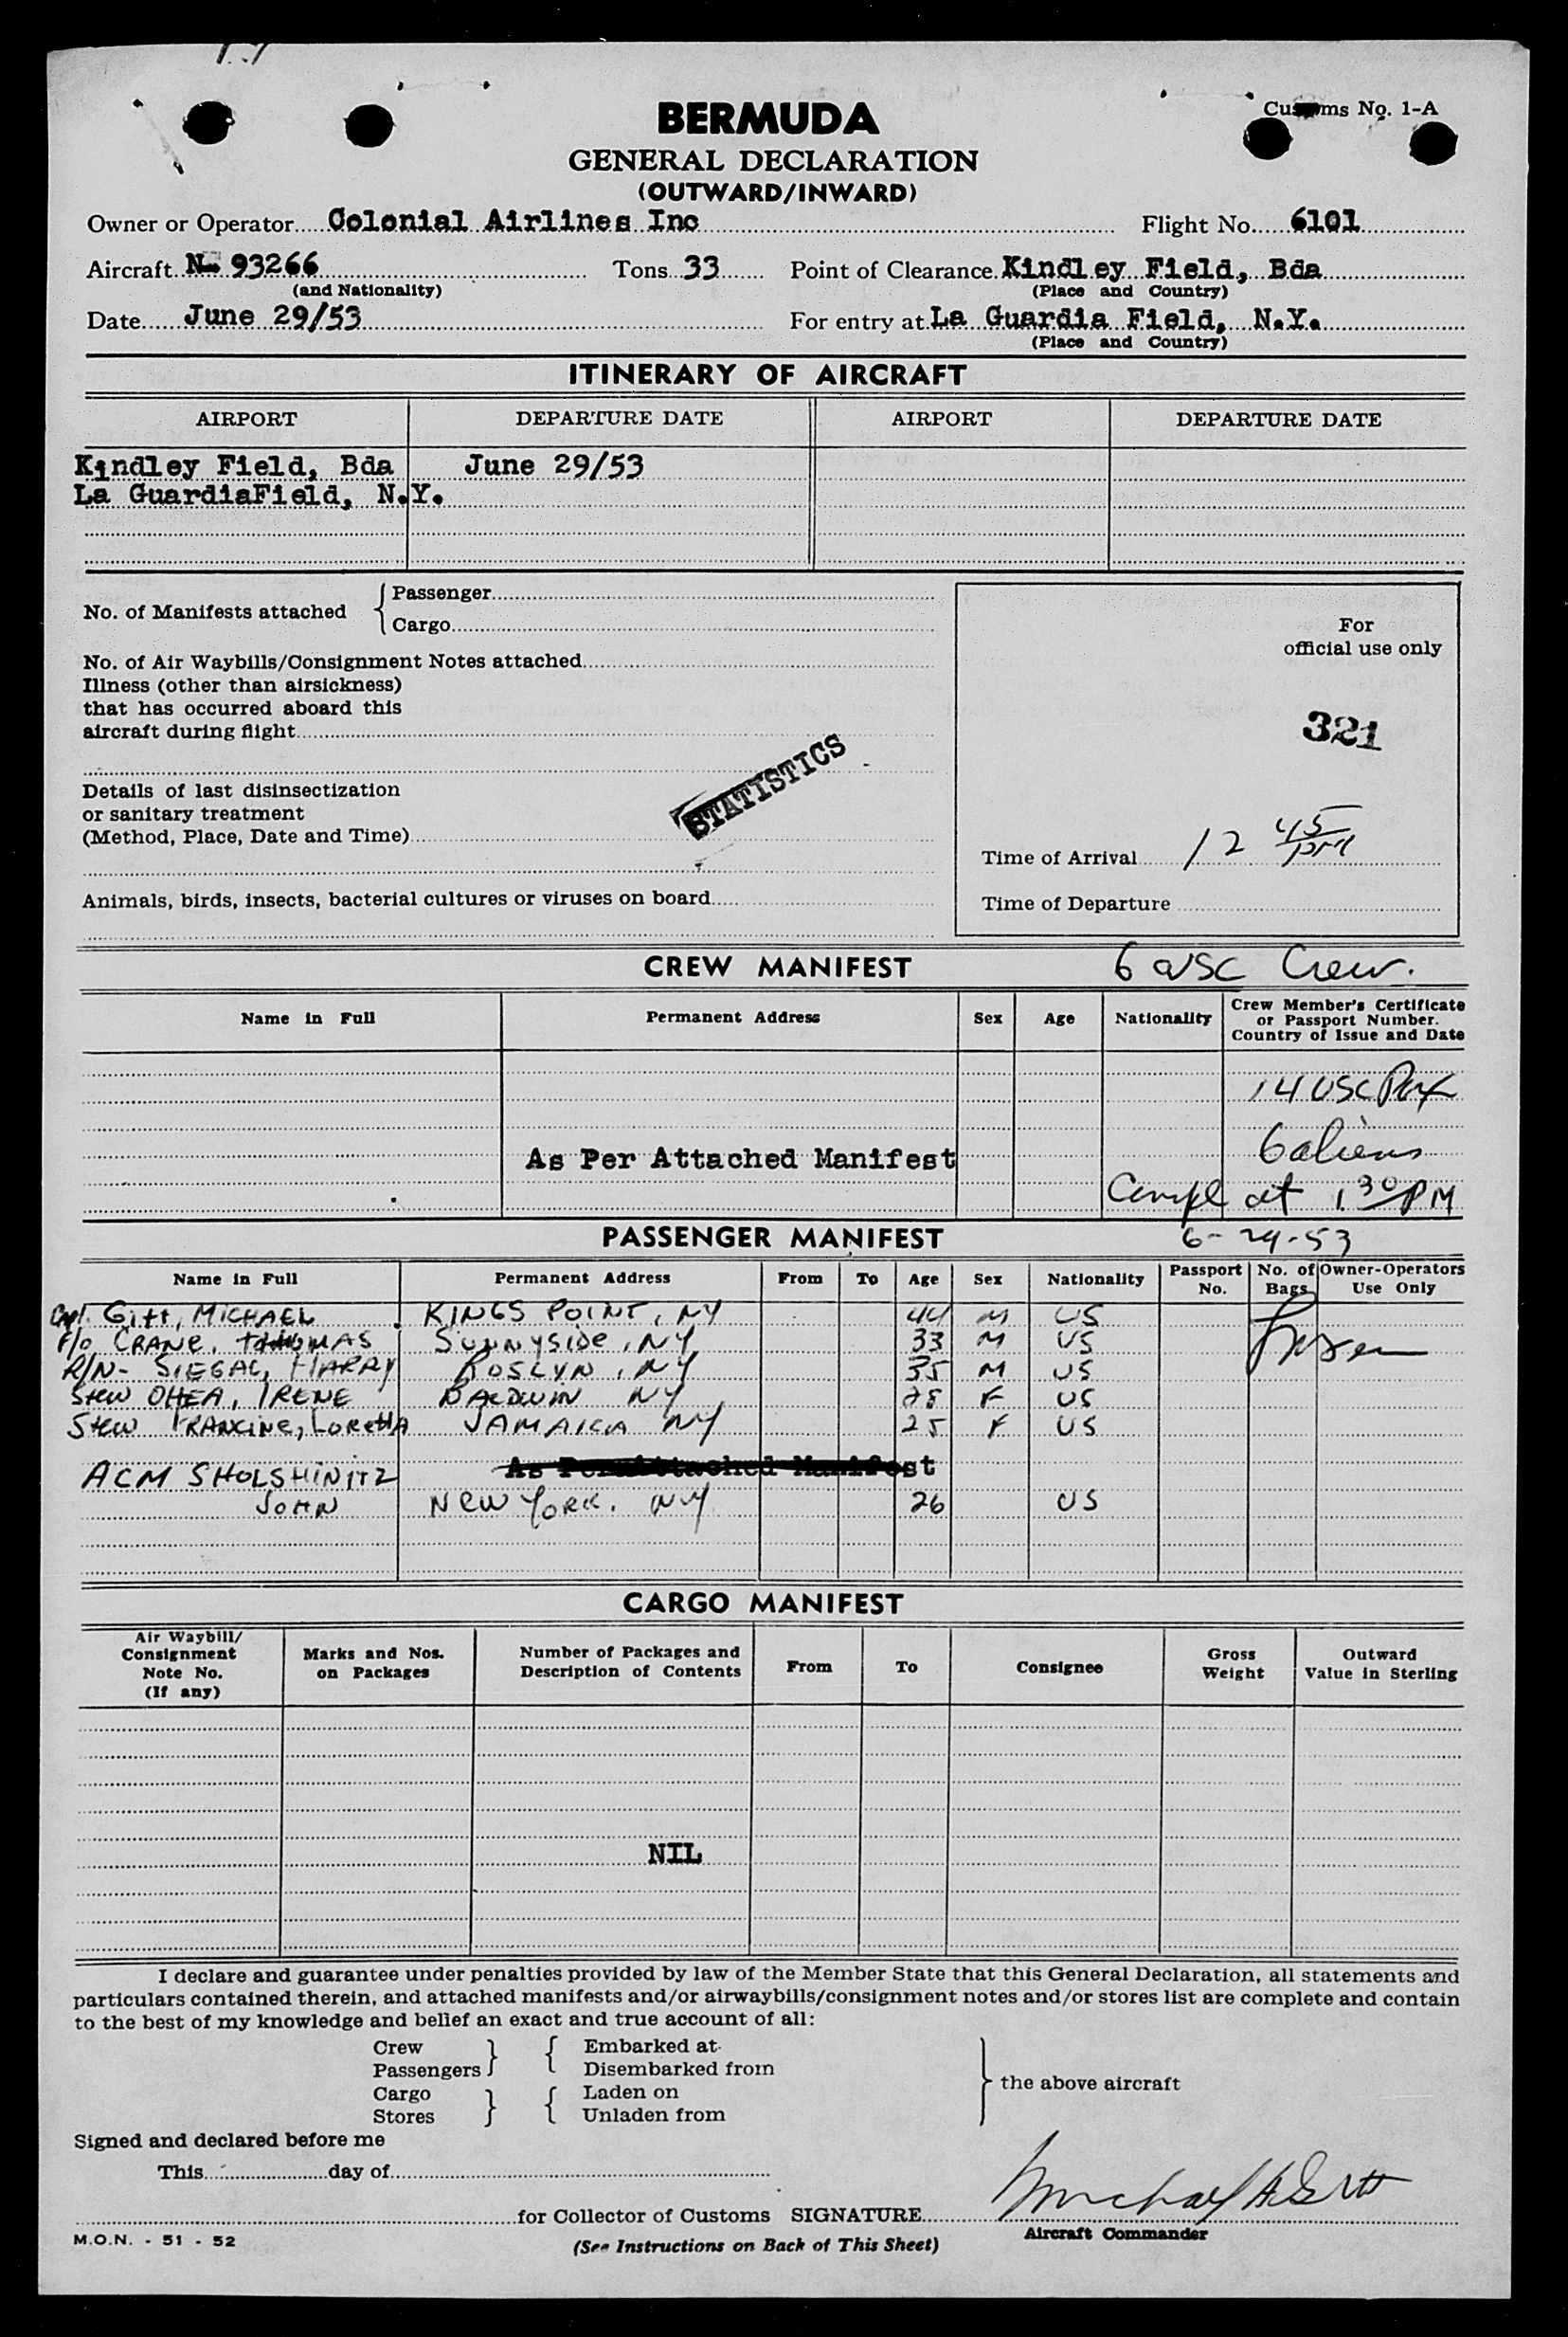 BERMUDA
Customs No. 1-A
GENERAL DECLARATION
(OUTWARD/INWARD)
Owner or Operator Colonial Airlines Inc Flight No. 6101
Aircraft N 93266 Tons 33 Point of Clearance Kindley Field, Bda
(and Nationality) (Place and Country)
Date June 29/53 For entry at La Guardia Field, N.Y.
(Place and Country)
ITINERARY OF AIRCRAFT
AIRPORT DEPARTURE DATE AIRPORT DEPARTURE DATE
Kindley Field, Bda June 29/53
La GuardiaField, N.Y.
No. of Manifests attached { Passenger
Cargo
For
official use only
No. of Air Waybills/Consignment Notes attached
Illness (other than airsickness)
that has occurred aboard this
aircraft during flight
321
STATISTICS
Details of last disinsectization
or sanitary treatment
(Method, Place, Date and Time)
Time of Arrival 12 45 PM
Animals, birds, insects, bacterial cultures or viruses on board
Time of Departure
CREW MANIFEST 6 USC Crew.
Name in Full Permanent Address Sex Age Nationality Crew Member's Certificate
or Passport Number.
Country of Issue and Date
14 USC Pax
6 aliens
As Per Attached Manifest
Compl at 1 30 PM
PASSENGER MANIFEST 6-29-53
Name in Full Permanent Address From To Age Sex Nationality Passport No. No. of Bags Owner-Operators Use Only
Cpt. Gitt, MICHAEL KINGS POINT, NY 44 M US
F/O CRANE, THOMAS SUNNYSIDE, NY 33 M US
R/N- SIEGAL, HARRY ROSLYN, NY 35 M US
Stew OHEA, IRENE BALDWIN NY 28 F US
Stew FRANCINE, Loretta JAMAICA NY 25 F US
As Per Attached Manifest
ACM SHOLSHINITZ
JOHN New York. NY 26 US
CARGO MANIFEST
Air Waybill/
Consignment
Note No.
(If any)
Marks and Nos.
on Packages
Number of Packages and
Description of Contents
From To Consignee
Gross
Weight
Outward
Value in Sterling
NIL
I declare and guarantee under penalties provided by law of the Member State that this General Declaration, all statements and
particulars contained therein, and attached manifests and/or airwaybills/consignment notes and/or stores list are complete and contain
to the best of my knowledge and belief an exact and true account of all:
Crew } { Embarked at
Passengers Disembarked from
Cargo } { Laden on
Stores Unladen from
} the above aircraft
Signed and declared before me
This day of
for Collector of Customs SIGNATURE Michael A Gitt
Aircraft Commander
M.O.N. - 51 - 52
(See Instructions on Back of This Sheet)